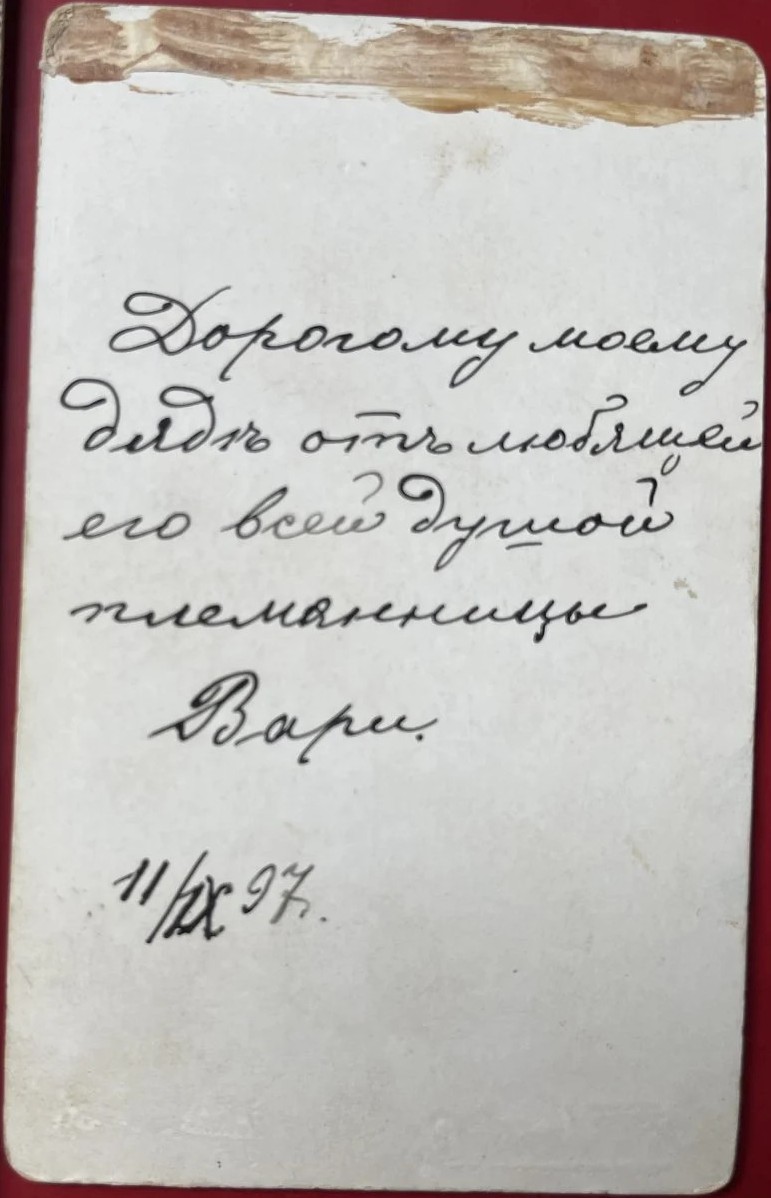 Дорогому моему
дядѣ отъ любящей
его всей душой
племянницы
Вари.
11/IX 97.